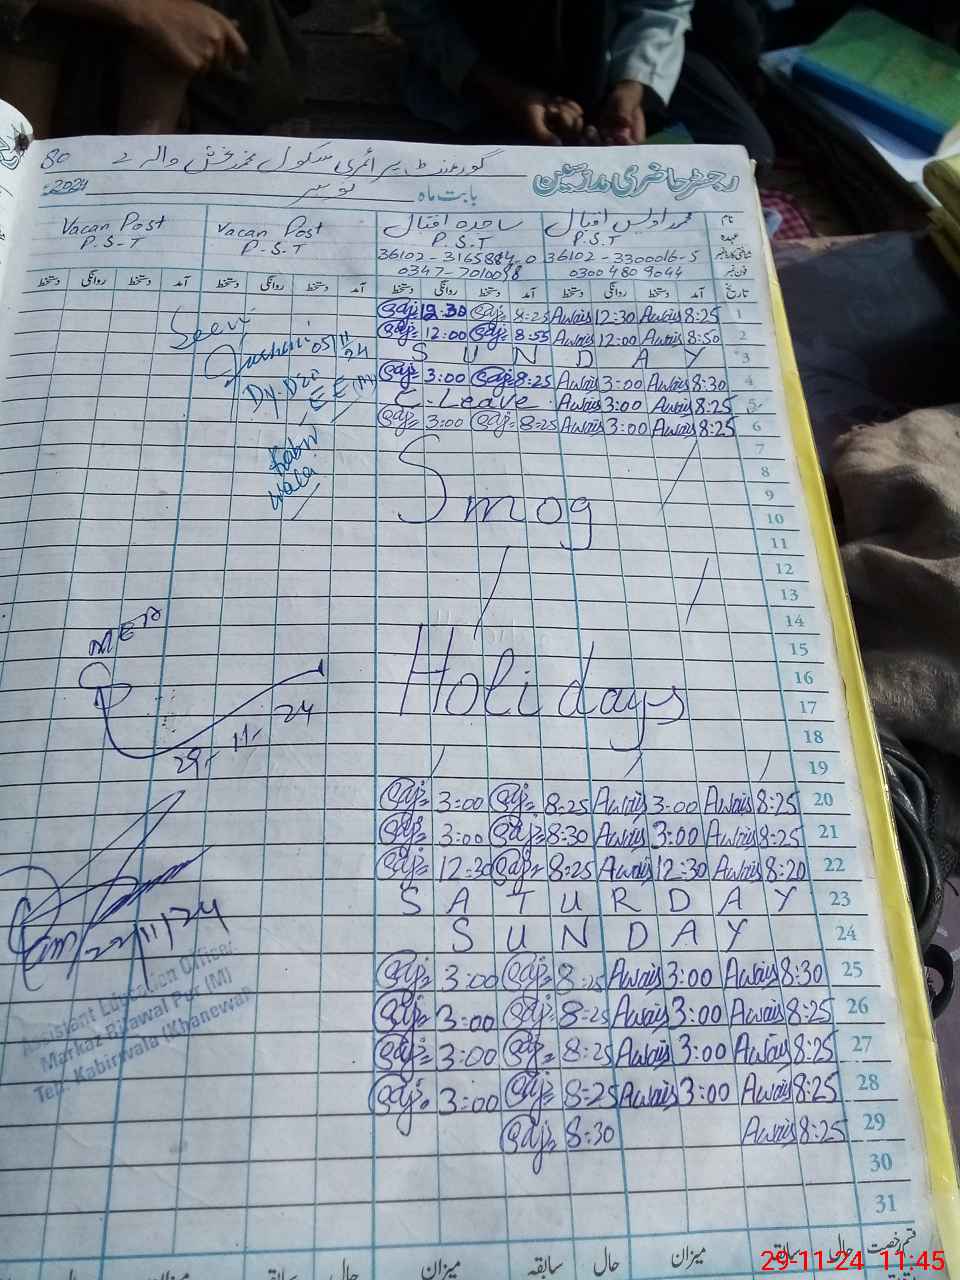 80 گورنمنٹ پرائمری سکول محمد بخش والہ 2 رجسٹر حاضری مدرسین
بابت ماہ نومبر 2024ء
نام محمد اویس اقبال ساجدہ اقبال Vacan Post Vacan Post
عہدہ P.S.T P.S.T P.S.T P.S-T
شناختی کارڈ نمبر 36102-3300016-5 36102-3165884-0
فون نمبر 0300 480 9044 0347-7010098
تاریخ آمد دستخط روانگی دستخط آمد دستخط روانگی دستخط آمد دستخط روانگی دستخط آمد دستخط روانگی دستخط
Saj 12:30 Saj 8:25 Awais 12:30 Awais 8:25 1
Saj 12:00 Saj 8:55 Awais 12:00 Awais 8:50 2
SUNDAY 3
Saj 3:00 Saj 8:25 Awais 3:00 Awais 8:30 4
C-Leave Awais 3:00 Awais 8:25 5
Saj 3:00 Saj 8:25 Awais 3:00 Awais 8:25 6
Seen
05/11/24
Dy. DEO
EE(M)
Kabir
wala
7
8
Smog 9
10
11
12
13
14
15
Holidays 16
17
18
19
MEA
29-11-24
Saj 3:00 Saj 8:25 Awais 3:00 Awais 8:25 20
Saj 3:00 Saj 8:30 Awais 3:00 Awais 8:25 21
Saj 12:30 Saj 8:25 Awais 12:30 Awais 8:20 22
SATURDAY 23
SUNDAY 24
Saj 3:00 Saj 8:25 Awais 3:00 Awais 8:30 25
Saj 3:00 Saj 8:25 Awais 3:00 Awais 8:25 26
Saj 3:00 Saj 8:25 Awais 3:00 Awais 8:25 27
Saj 3:00 Saj 8:25 Awais 3:00 Awais 8:25 28
Saj 8:30 Awais 8:25 29
30
31
22/11/24
Assistant Education Officer
Markaz Bilawal Pur (M)
Teh: Kabirwala (Khanewal)
قسم رخصت حال سابقہ میزان حال سابقہ میزان حال
29-11-24 11:45